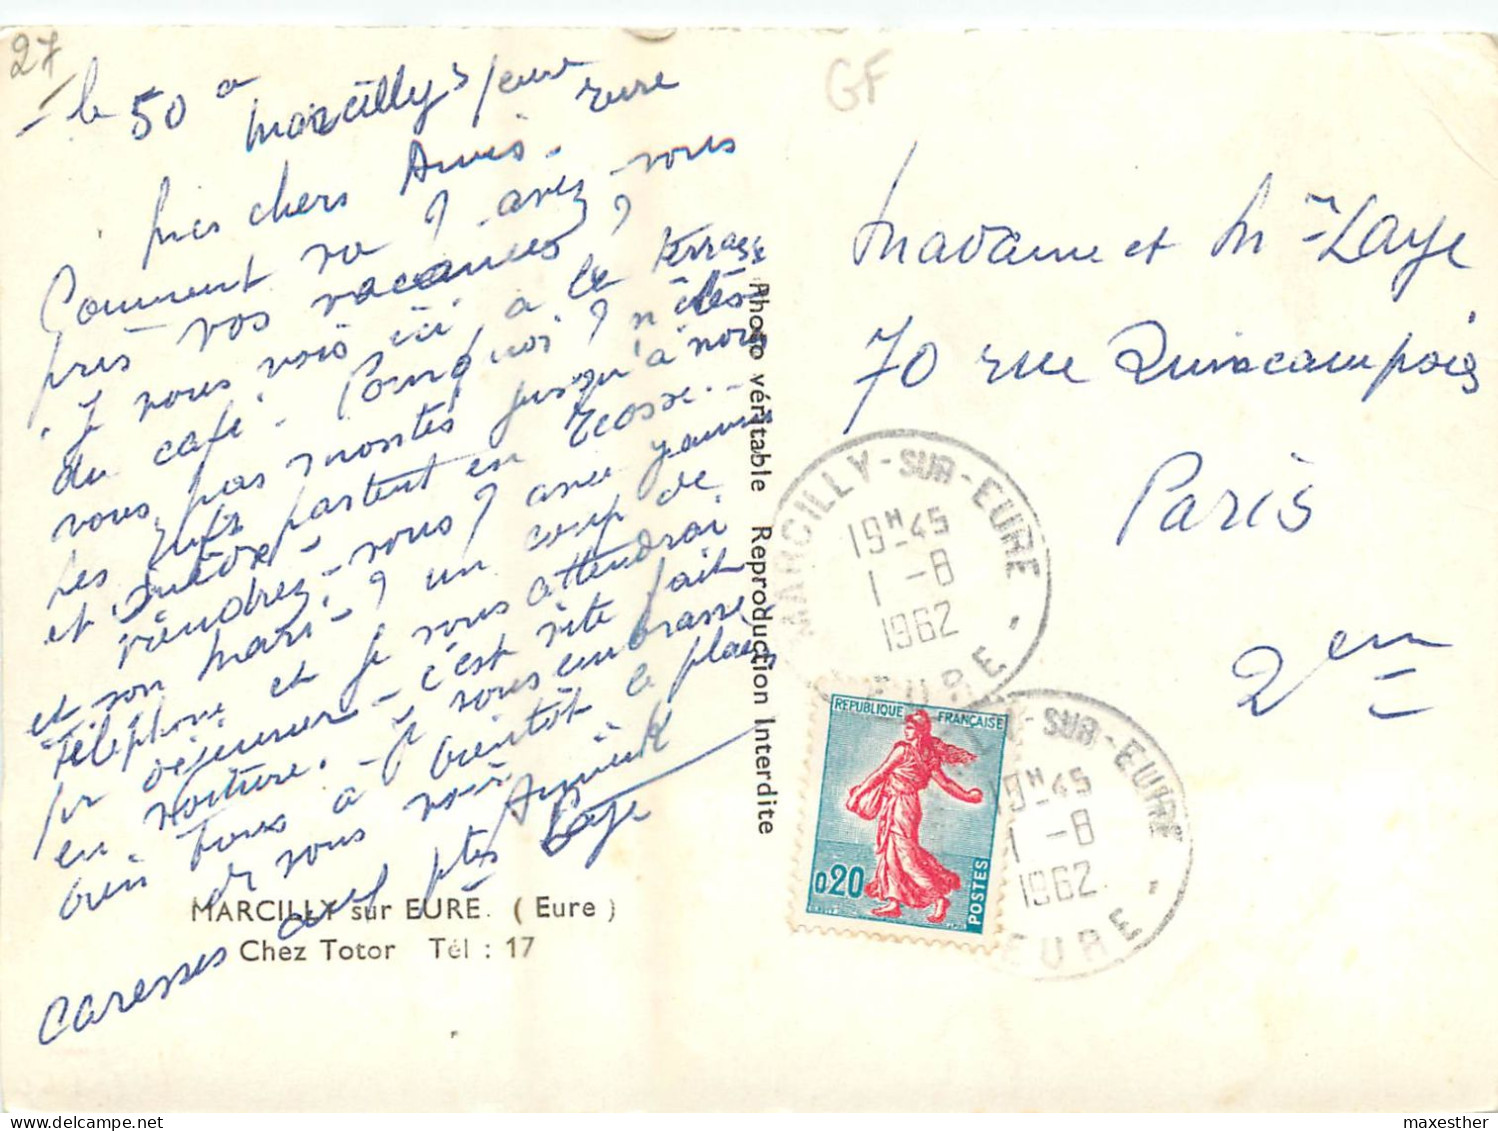 27
GF
le 50 a
Marcilly s/eure
Eure
mes chers Amis.
Comment va ? avez-vous
pris vos vacances ?
Je vous vois ici à la terrasse
du café. Pourquoi ? n'êtes
vous pas montés jusqu'à nous
Les Enfts partent en Ecosse..
et
viendrez-vous ? avec
et son mari - ? un coup de
téléphone et je vous attendrai
pr déjeuner - c'est vite fait
en voiture. Je vous embrasse
bien tous à bientôt le plaisir
de vous voir
caresses aux ptes
MARCILLY sur EURE. ( Eure )
Chez Totor Tél : 17
Photo véritable Reproduction Interdite
Madame et Mr Laye
70 rue Quincampois
Paris
2em
MARCILLY-SUR-EURE
19H45
1 -8
1962
EURE
REPUBLIQUE FRANÇAISE
0,20
POSTES
-SUR-EURE
19H45
1 -8
1962
EURE
delcampe.net
maxesther